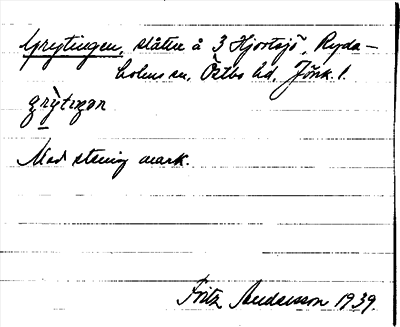 Grytingen, slåtter å 3 Hjortsjö, Ryda-
holms sn. Östbo hd. Jönk. l.
grỳtɩŋən
Med stenig mark.
Fritz Andersson 1939.